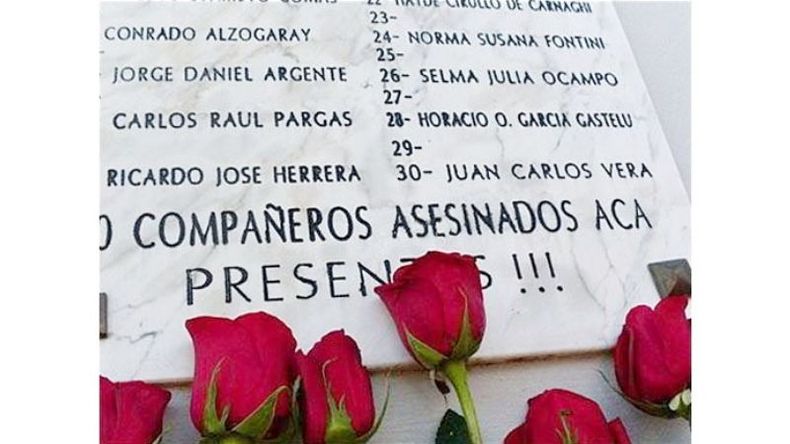 CONRADO ALZOGARAY
JORGE DANIEL ARGENTE
CARLOS RAUL PARGAS
RICARDO JOSE HERRERA
22- HAYDE CIRULLO DE CARNAGHI
23-
24- NORMA SUSANA FONTINI
25-
26- SELMA JULIA OCAMPO
27-
28- HORACIO O. GARCIA GASTELU
29-
30- JUAN CARLOS VERA
0 COMPAÑEROS ASESINADOS ACA
PRESENTES !!!